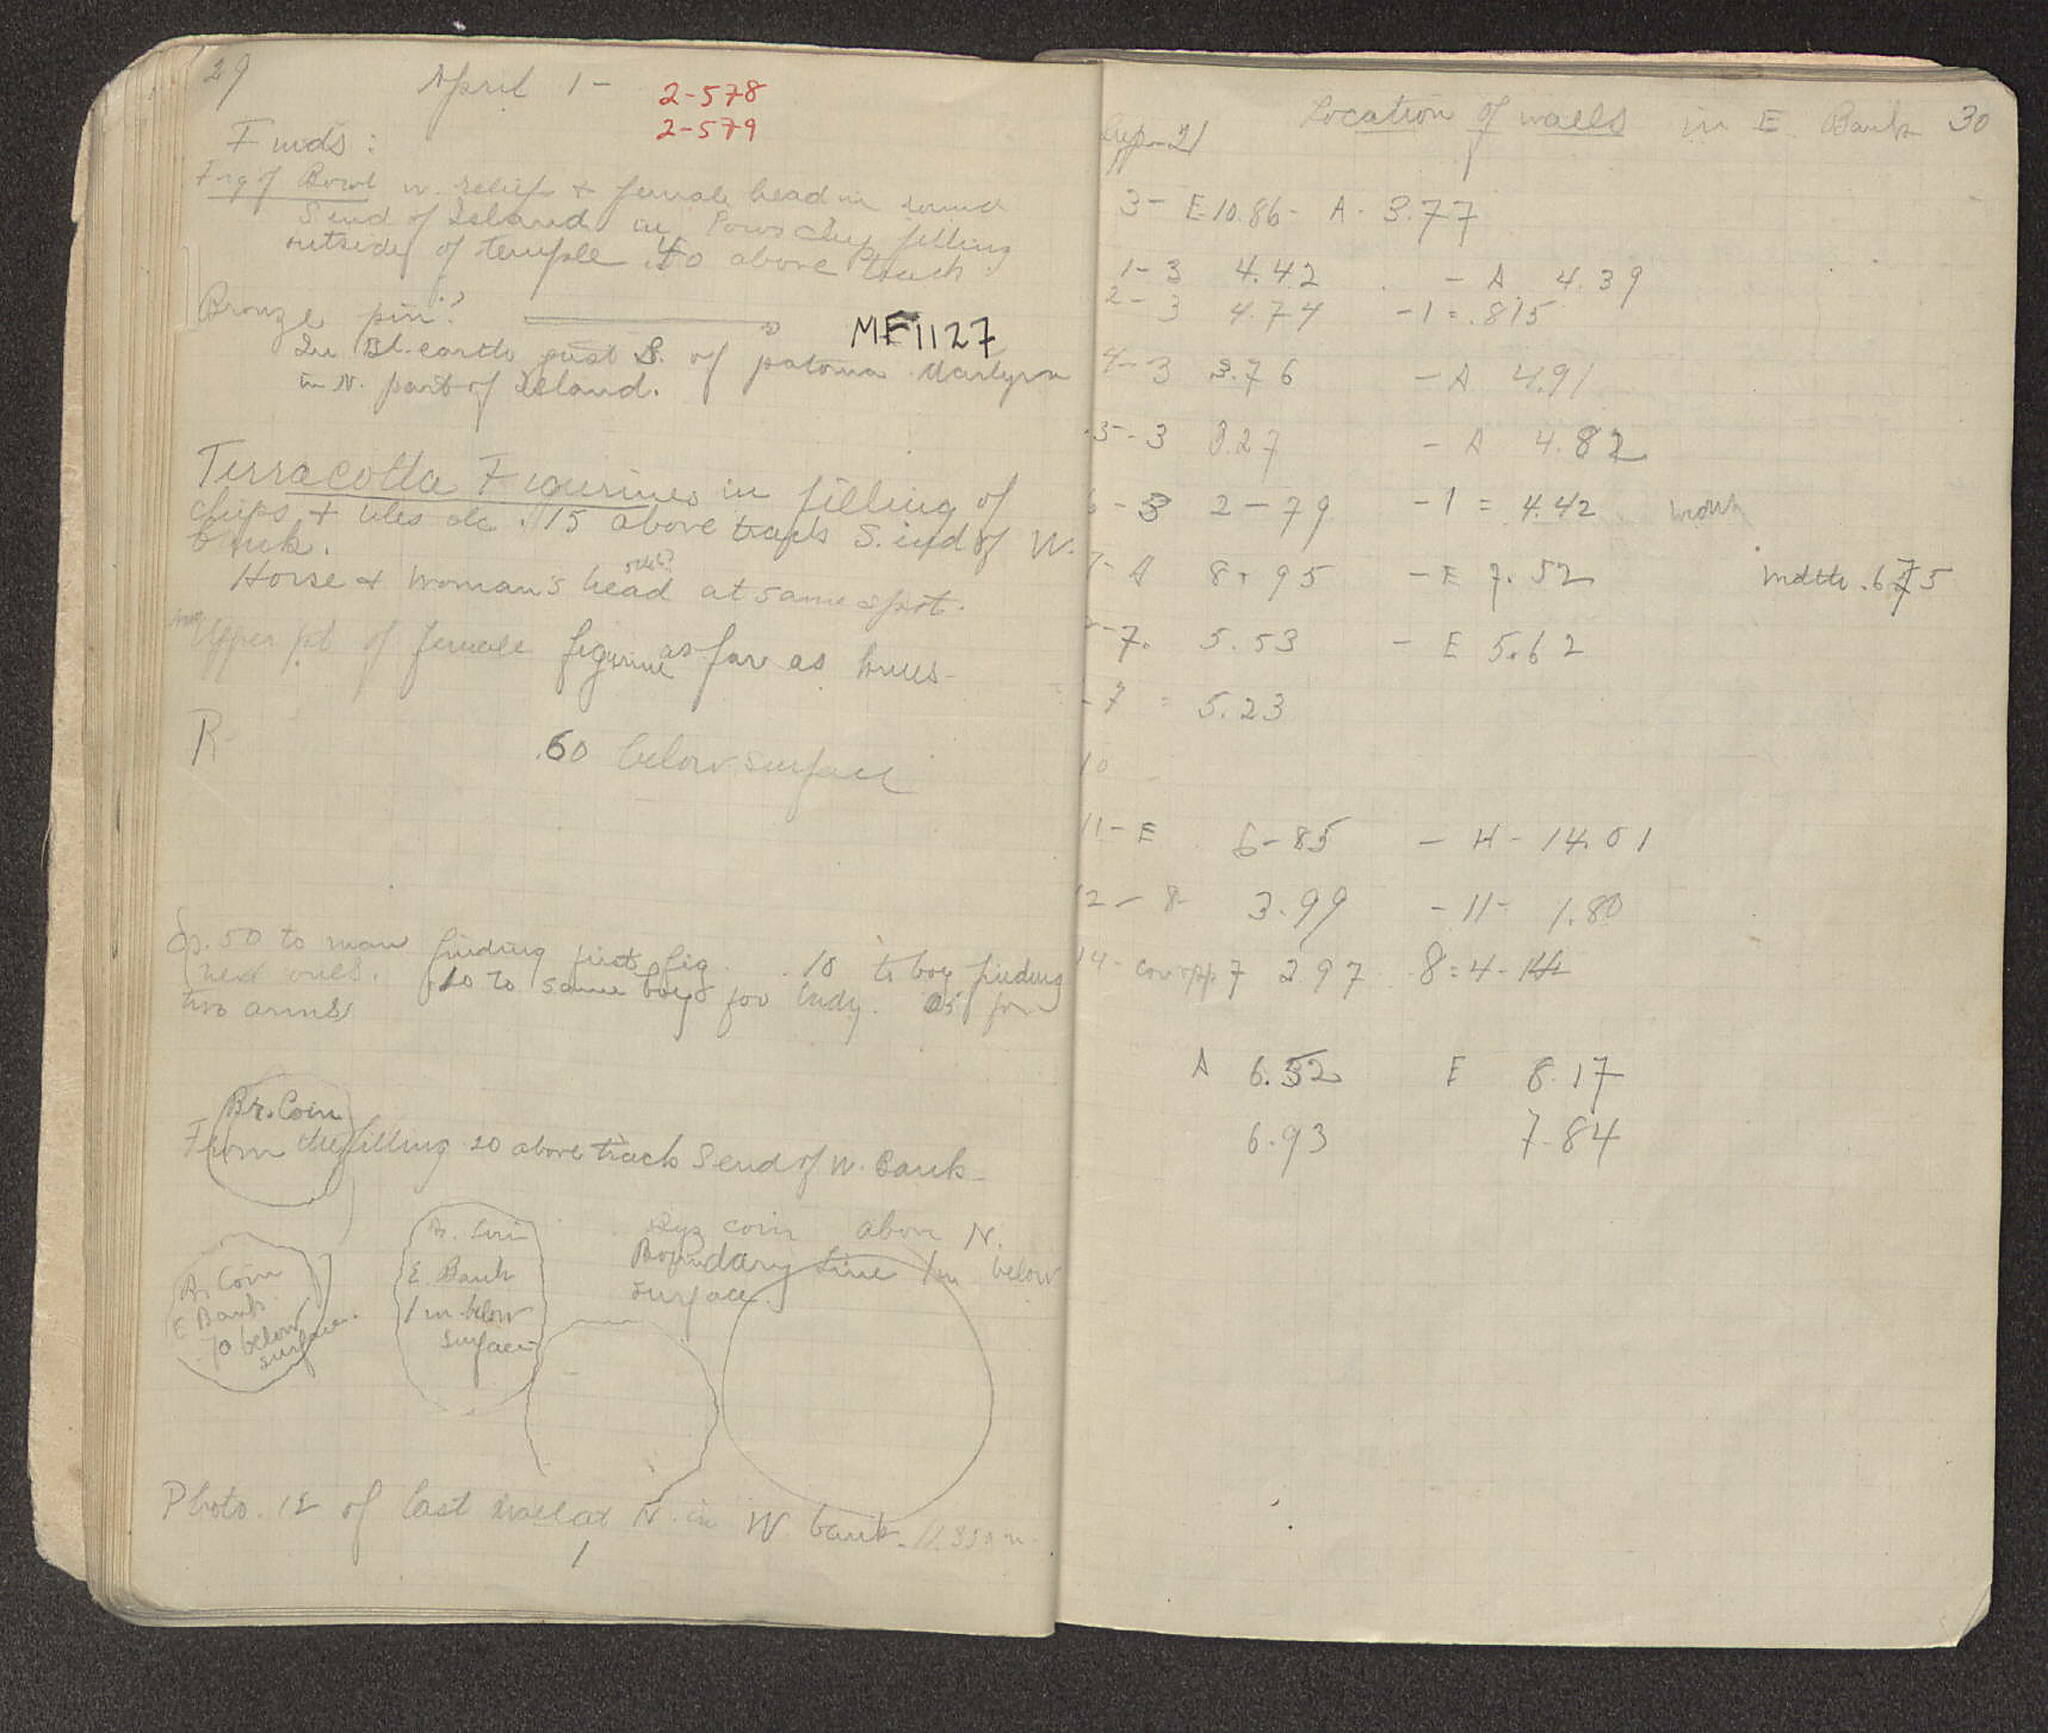 29
April 1 -
2-578
2-579
Finds:
Frg of Bowl w. relief + female head in
S end of Island in Poros chip filling
outside of temple .40 above track
Bronze pin?
MF1127
In Bl. earth just S. of
in N. part of Island.
Terracotta Figurines in filling of
chips + tiles etc .15 above track S. end of W.
bank.
Horse + woman's head at same spot.
Upper pt of female figurine as far as knees -
R -
.60 below surface
50 to man finding first fig. .10 to boy finding
next ones. .10 to same boy for lady. 05 for
two arms
Br. Coin
From the filling 20 above track S end of W. Bank -
Coin
E Bank
.70 below
surface.
E. Bank
1 m below
surface
Byz coin above N.
Boundary line 1m below
surface.
Photo. 12 of last wall at N. in W. bank -
1
Location of walls in E. Bank 30
3 - E 10.86 - A - 3.77
1 - 3 4.42 - A 4.39
2 - 3 4.74 - 1 = .815
4 - 3 3.76 - A 4.91
5 - 3 3.27 - A 4.82
- 3 2 - 79 - 1 = 4.42
- A 8.95 - E 7.52
- 7. 5.53 - E 5.62
- 7 = 5.23
10
11 - E 6 - 85 - H - 14.01
12 - 8 - 3.99 - 11 - 1.80
14 - cor opp. 7 2 97 8 = 4 -
A 6.52 E 8.17
6.93 7.84